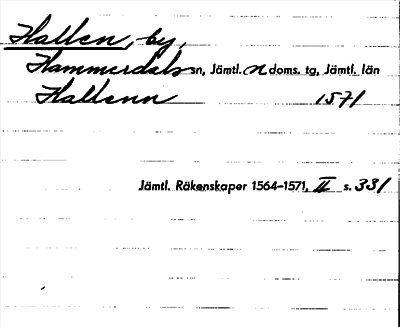 Hallen, by,
Hammerdals sn, Jämtl. n doms. tg, Jämtl. län
Hallenn 1571
Jämtl. Räkenskaper 1564–1571, II s. 331